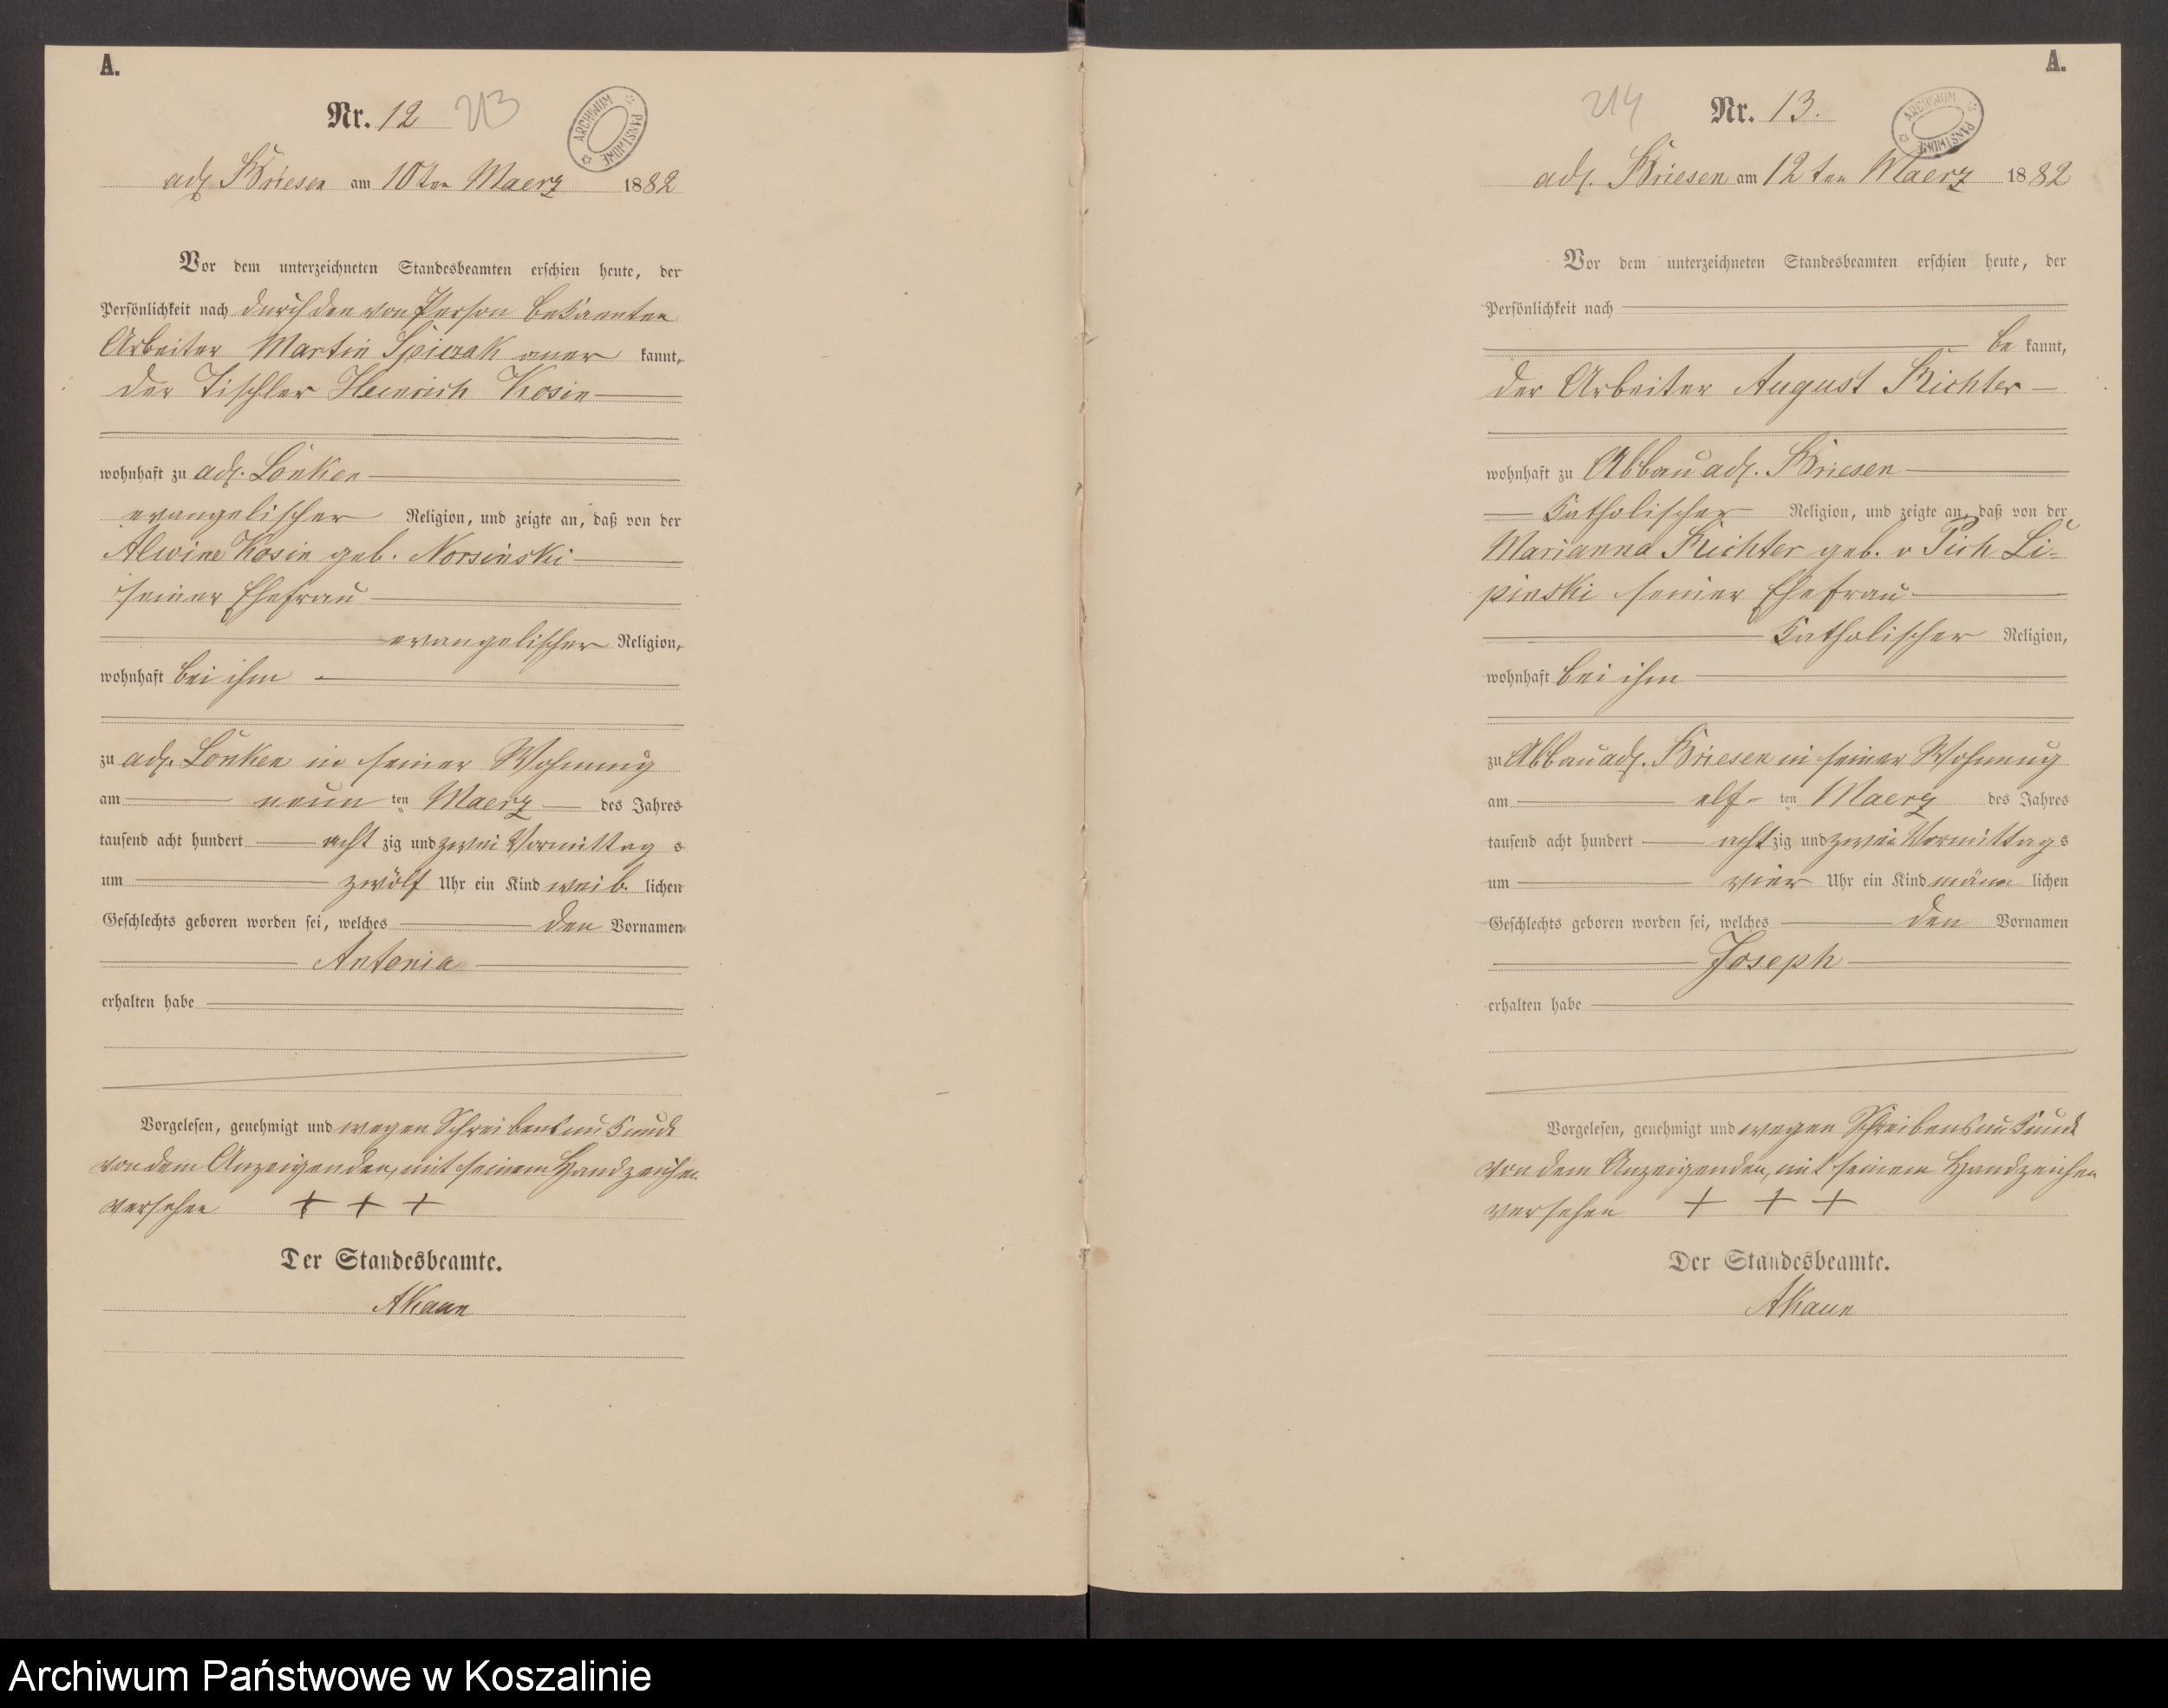 A.
Nr. 12 213
ARCHIWUM PAŃSTWOWE
adl. Briesen am 10ten Maerz 1882
Vor dem unterzeichneten Standesbeamten erschien heute, der
Persönlichkeit nach durch den von Person bekannten
Arbeiter Martin Spiczak aner kannt,
der Tischler Heinrich Kosin
wohnhaft zu adl. Lonken
evangelischer Religion, und zeigte an, daß von der
Alwine Kosin geb. Norsinski
seiner Ehefrau
evangelischer Religion,
wohnhaft bei ihm
zu adl. Lonken in seiner Wohnung
am neun ten Maerz des Jahres
tausend acht hundert acht zig und zwei Vormittag s
um zwölf Uhr ein Kind weib lichen
Geschlechts geboren worden sei, welches den Vornamen
Antonia
erhalten habe
Vorgelesen, genehmigt und wegen Schreibensunkunde
von dem Anzeigenden, mit seinem Handzeichen
versehen + + +
Der Standesbeamte.
A.
214 Nr. 13.
ARCHIWUM PAŃSTWOWE
adl. Briesen am 12ten Maerz 1882
Vor dem unterzeichneten Standesbeamten erschien heute, der
Persönlichkeit nach
be kannt,
der Arbeiter August Richter
wohnhaft zu Abbau adl. Briesen
katholischer Religion, und zeigte an, daß von der
Marianna Richter geb. v Pich Li-
pinski seiner Ehefrau
katholischer Religion,
wohnhaft bei ihm
zu Abbau adl. Briesen in seiner Wohnung
am elf ten Maerz des Jahres
tausend acht hundert acht zig und zwei Vormittag s
um vier Uhr ein Kind männ lichen
Geschlechts geboren worden sei, welches den Vornamen
Joseph
erhalten habe
Vorgelesen, genehmigt und wegen Schreibensunkunde
von dem Anzeigenden, mit seinem Handzeichen
versehen + + +
Der Standesbeamte.
Archiwum Państwowe w Koszalinie